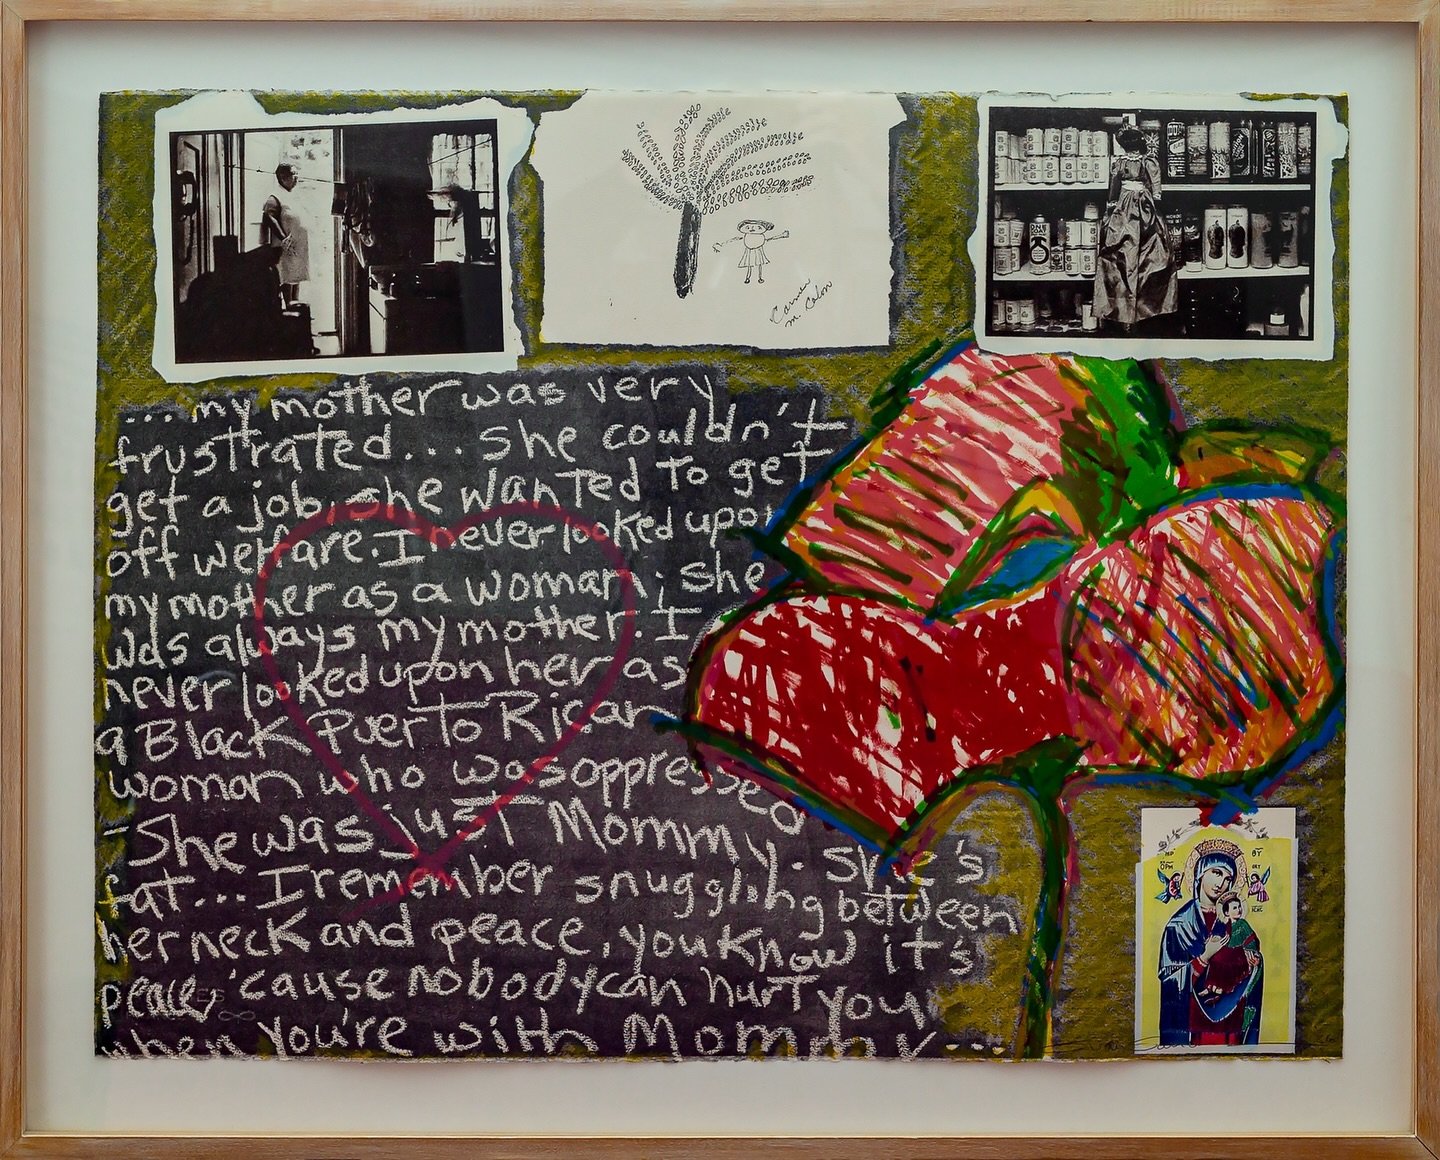 Carmen
M. Colon
...my mother was very
frustrated... she couldn't
get a job, she wanted to get
off welfare. I never looked upon
my mother as a woman; she
was always my mother. I
never looked upon her as
a Black Puerto Rican
woman who was oppressed
-She was just Mommy. She's
fat... I remember snuggling between
her neck and peace, you know it's
peace, 'cause nobody can hurt you
when you're with Mommy...